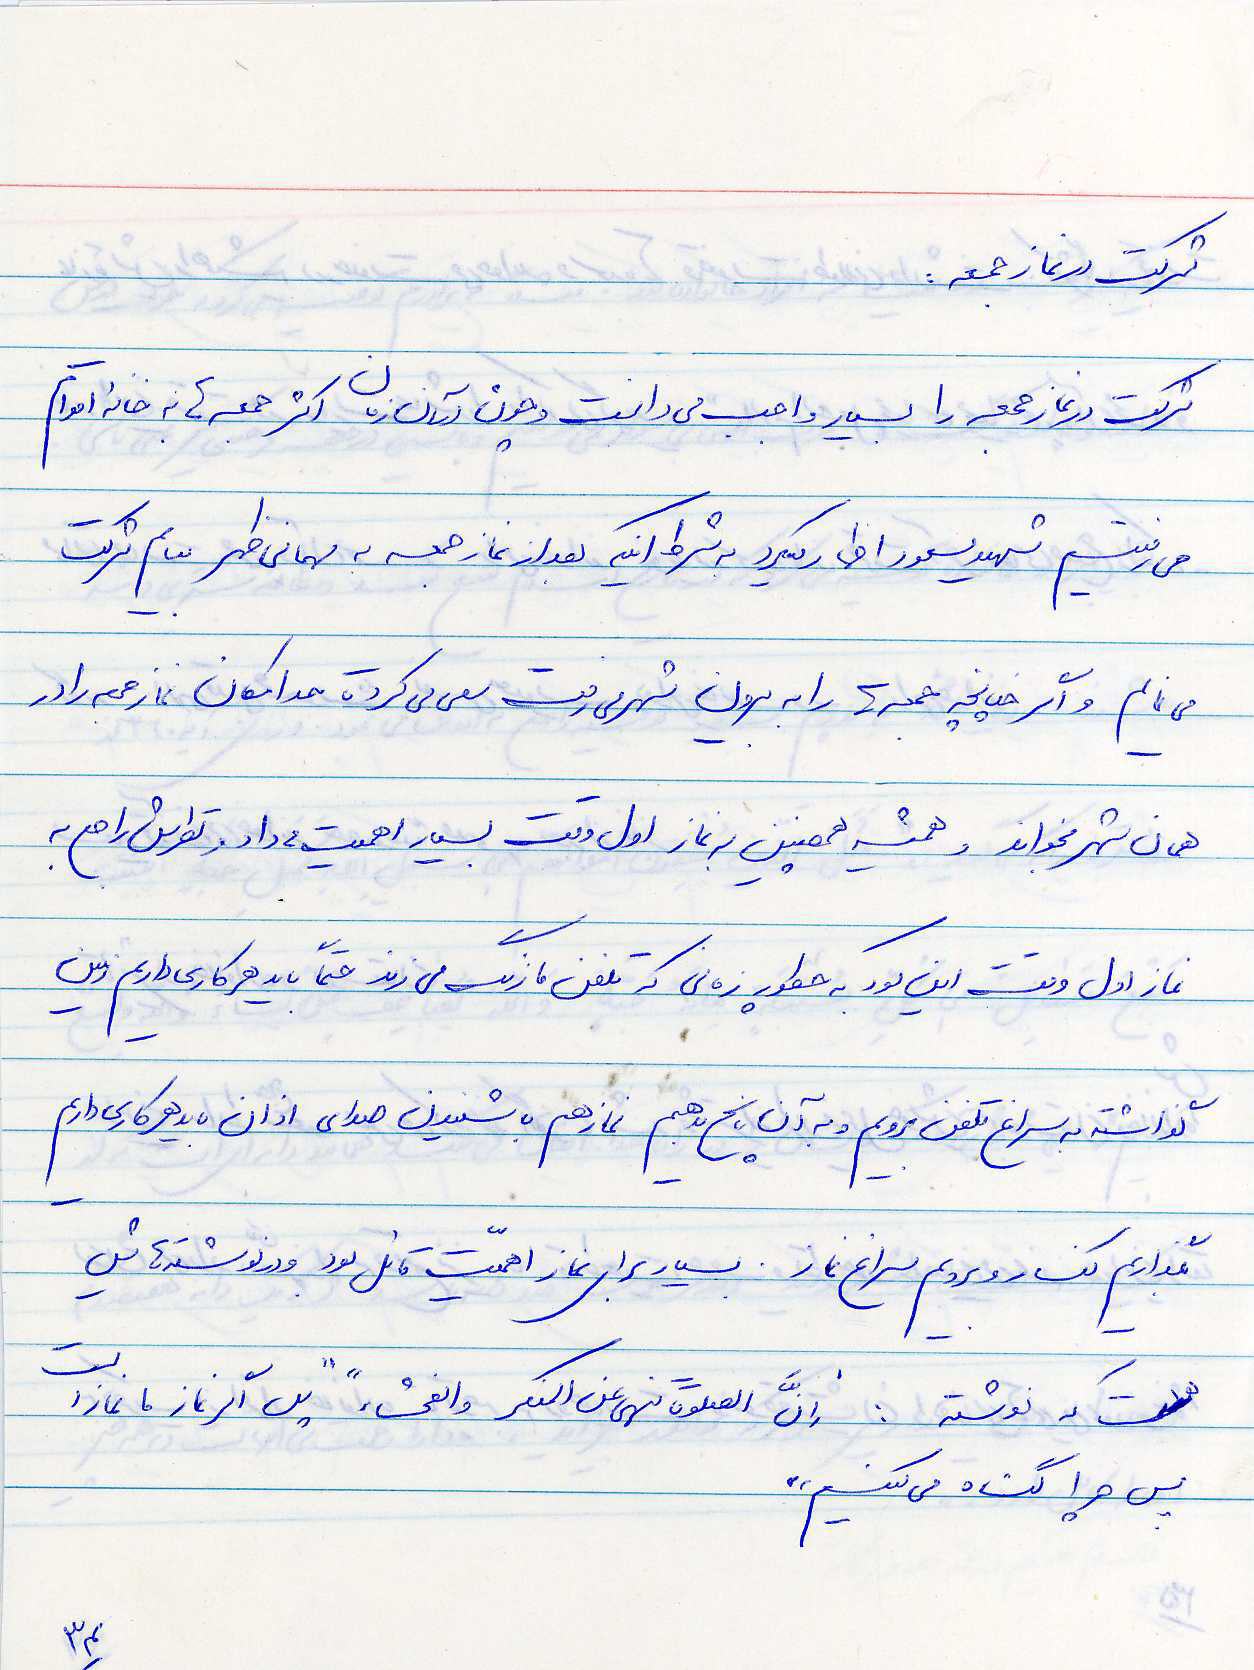 شرکت در نماز جمعه :
شرکت در نماز جمعه را بسیار واجب می دانست و چون در آن زمان اکثر جمعه ها به خانه اقوام
می رفتیم شهید مسعود اظهار میکرد به شرط اینکه بعد از نماز جمعه به مهمانی ظهر بیایم شرکت
می نمایم و اگر چنانچه جمعه ها را به بیرون شهر می رفت سعی می کرد تا حد امکان نماز جمعه را در
همان شهر بخواند و همیشه همچنین به نماز اول وقت بسیار اهمیت می داد و نظرش راجع به
نماز اول وقت این بود که چطور زمانی که تلفن ما زنگ می زند حتماً باید هر کاری داریم زمین
گذاشته به سراغ تلفن برویم و به آن پاسخ بدهیم نماز هم با شنیدن صدای اذان باید هر کاری داریم
بگذاریم کنار و برویم سراغ نماز . بسیار برای نماز اهمیّت قائل بود و در نوشته هایش
هست که نوشته : "اِنَّ الصلوة تنهی عن المنکر والفحشاء" "پس اگر نماز ما نماز است
پس چرا گناه می کنیم"
۳۴